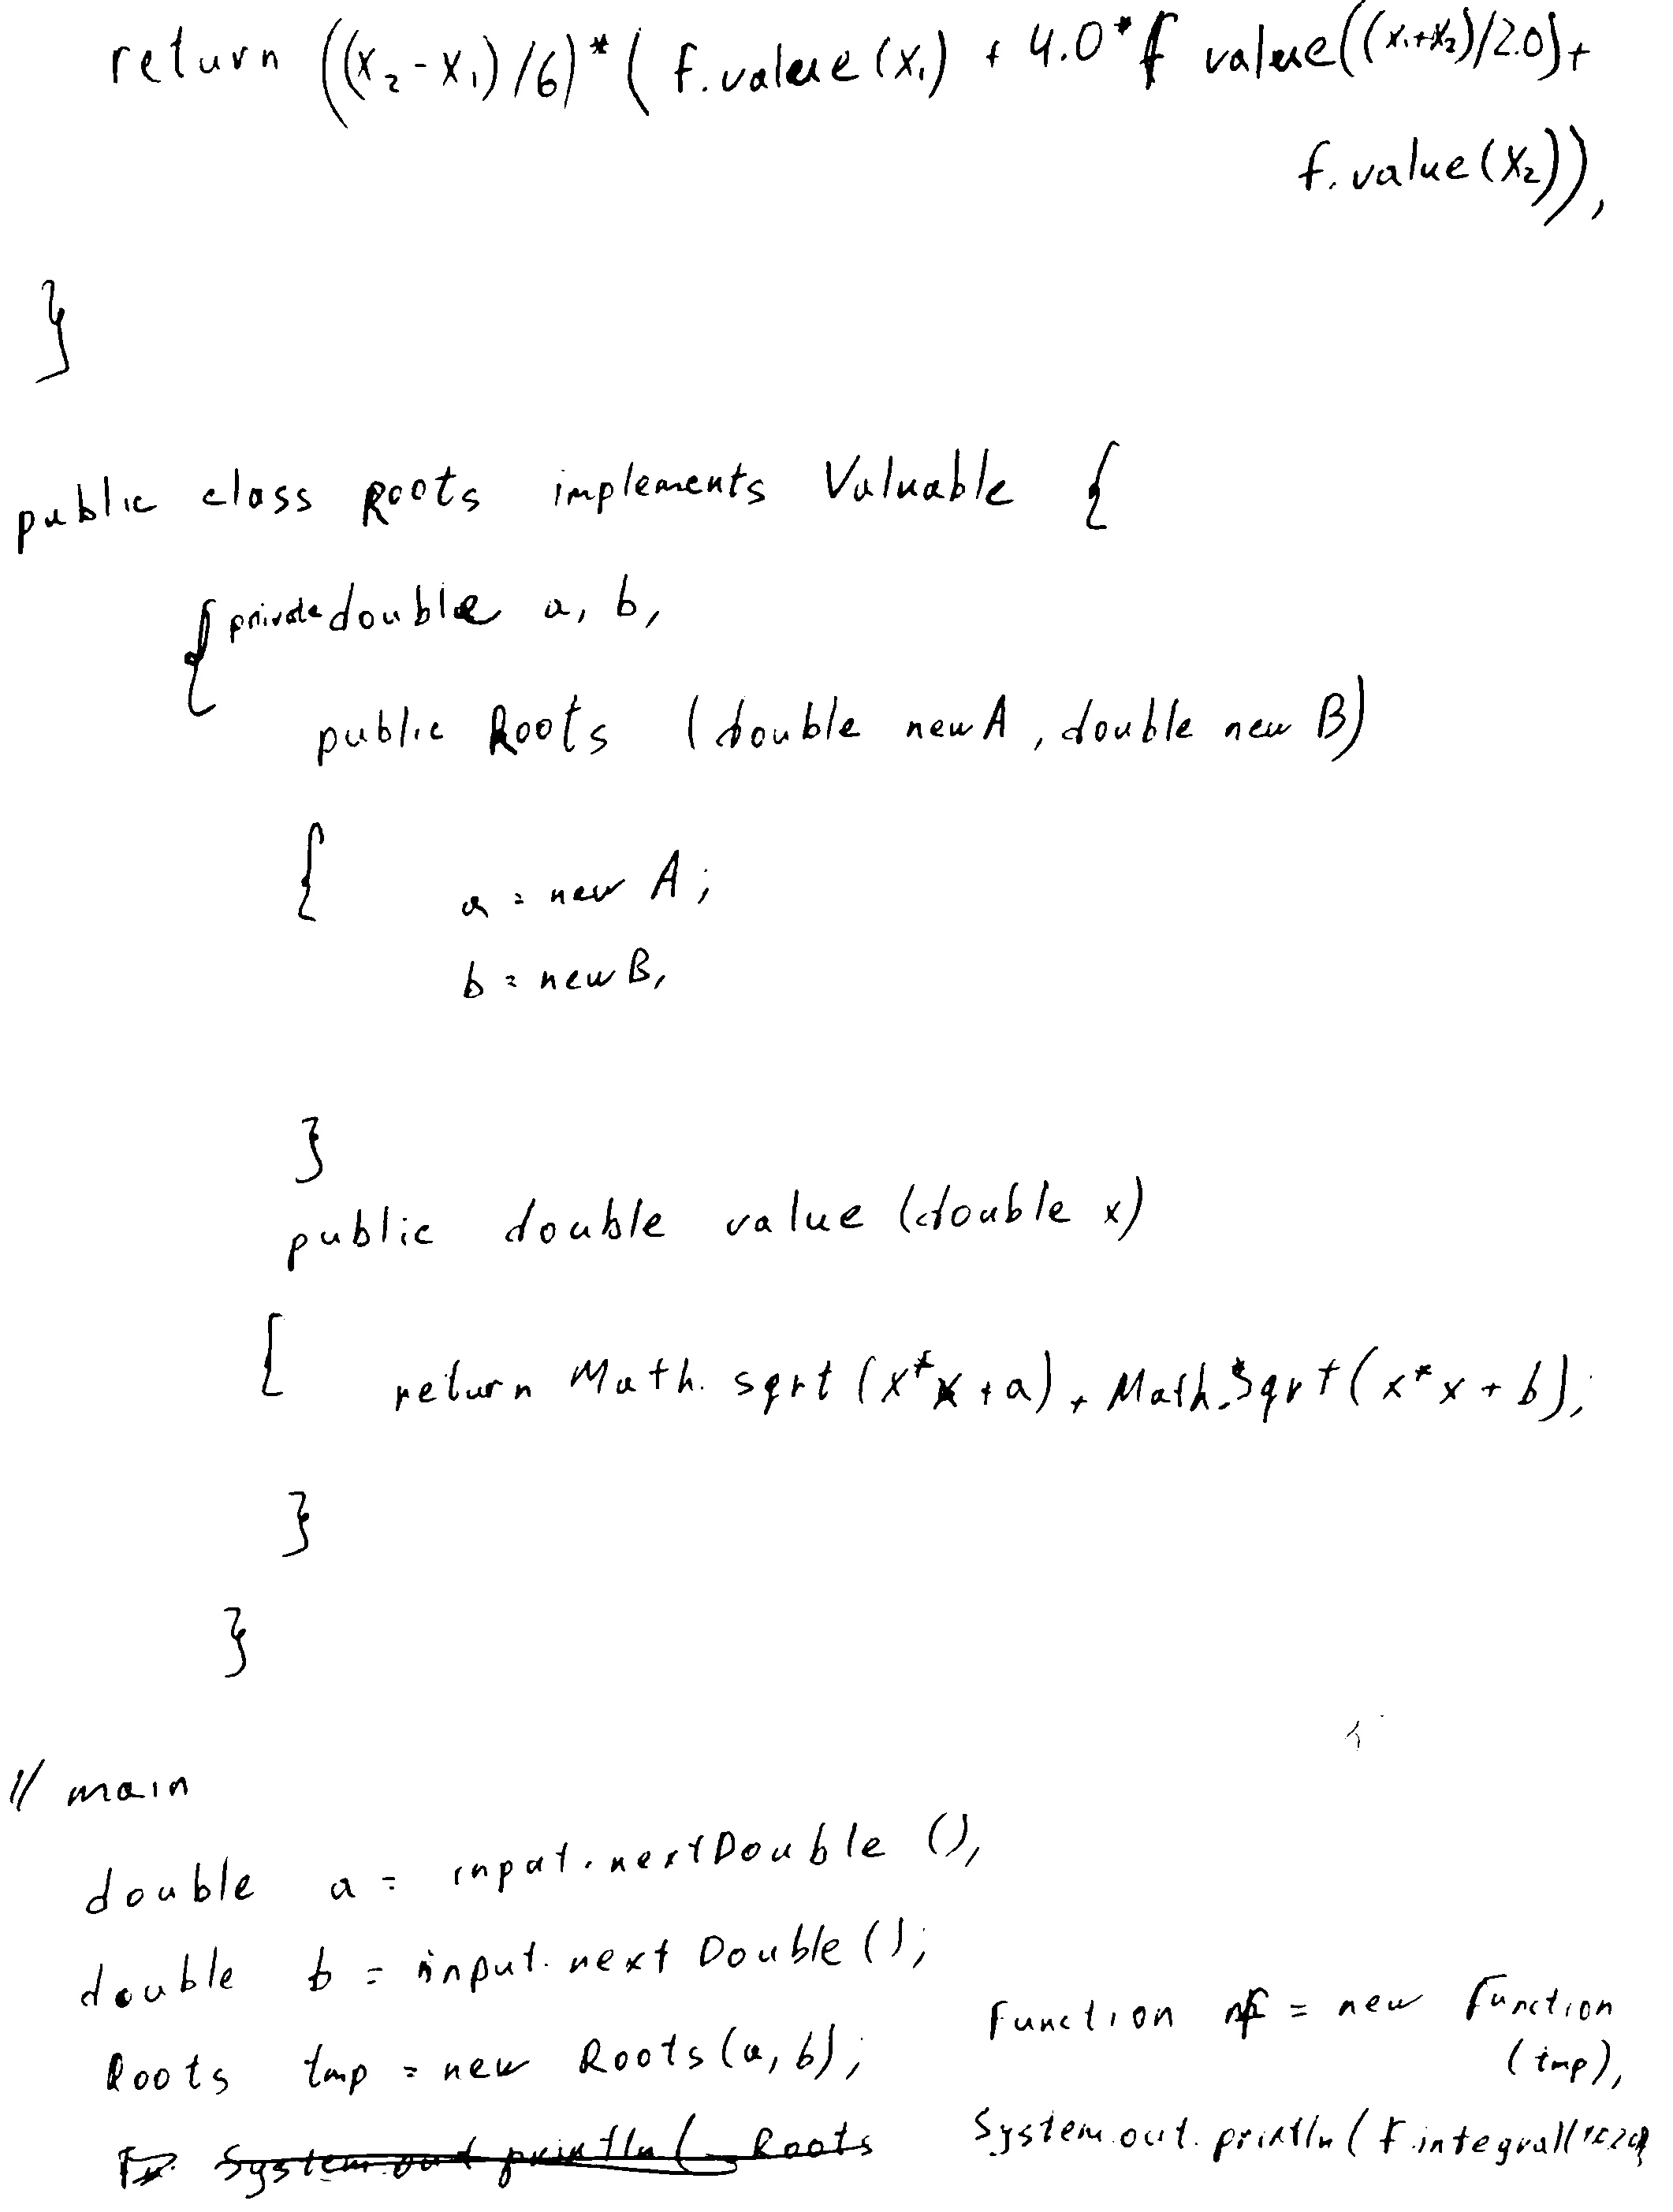 return ((x₂-x₁)/6)*( f.value(x₁) + 4.0*f value((x₁+x₂)/2.0)+
f.value(x₂)),
}
public class Roots implements Valuable {
{ private double a, b,
public Roots (double newA, double new B)
{ a = new A;
b = newB,
}
public double value (double x)
{ return Math. sqrt (x*x+a) + Math.sqrt(x*x+b);
}
}
// main
double a = input.nextDouble (),
double b = input.next Double();
Roots tmp = new Roots(a,b);
System.out println( Roots
Function f = new Function
(tmp),
System.out.println( f.integral(